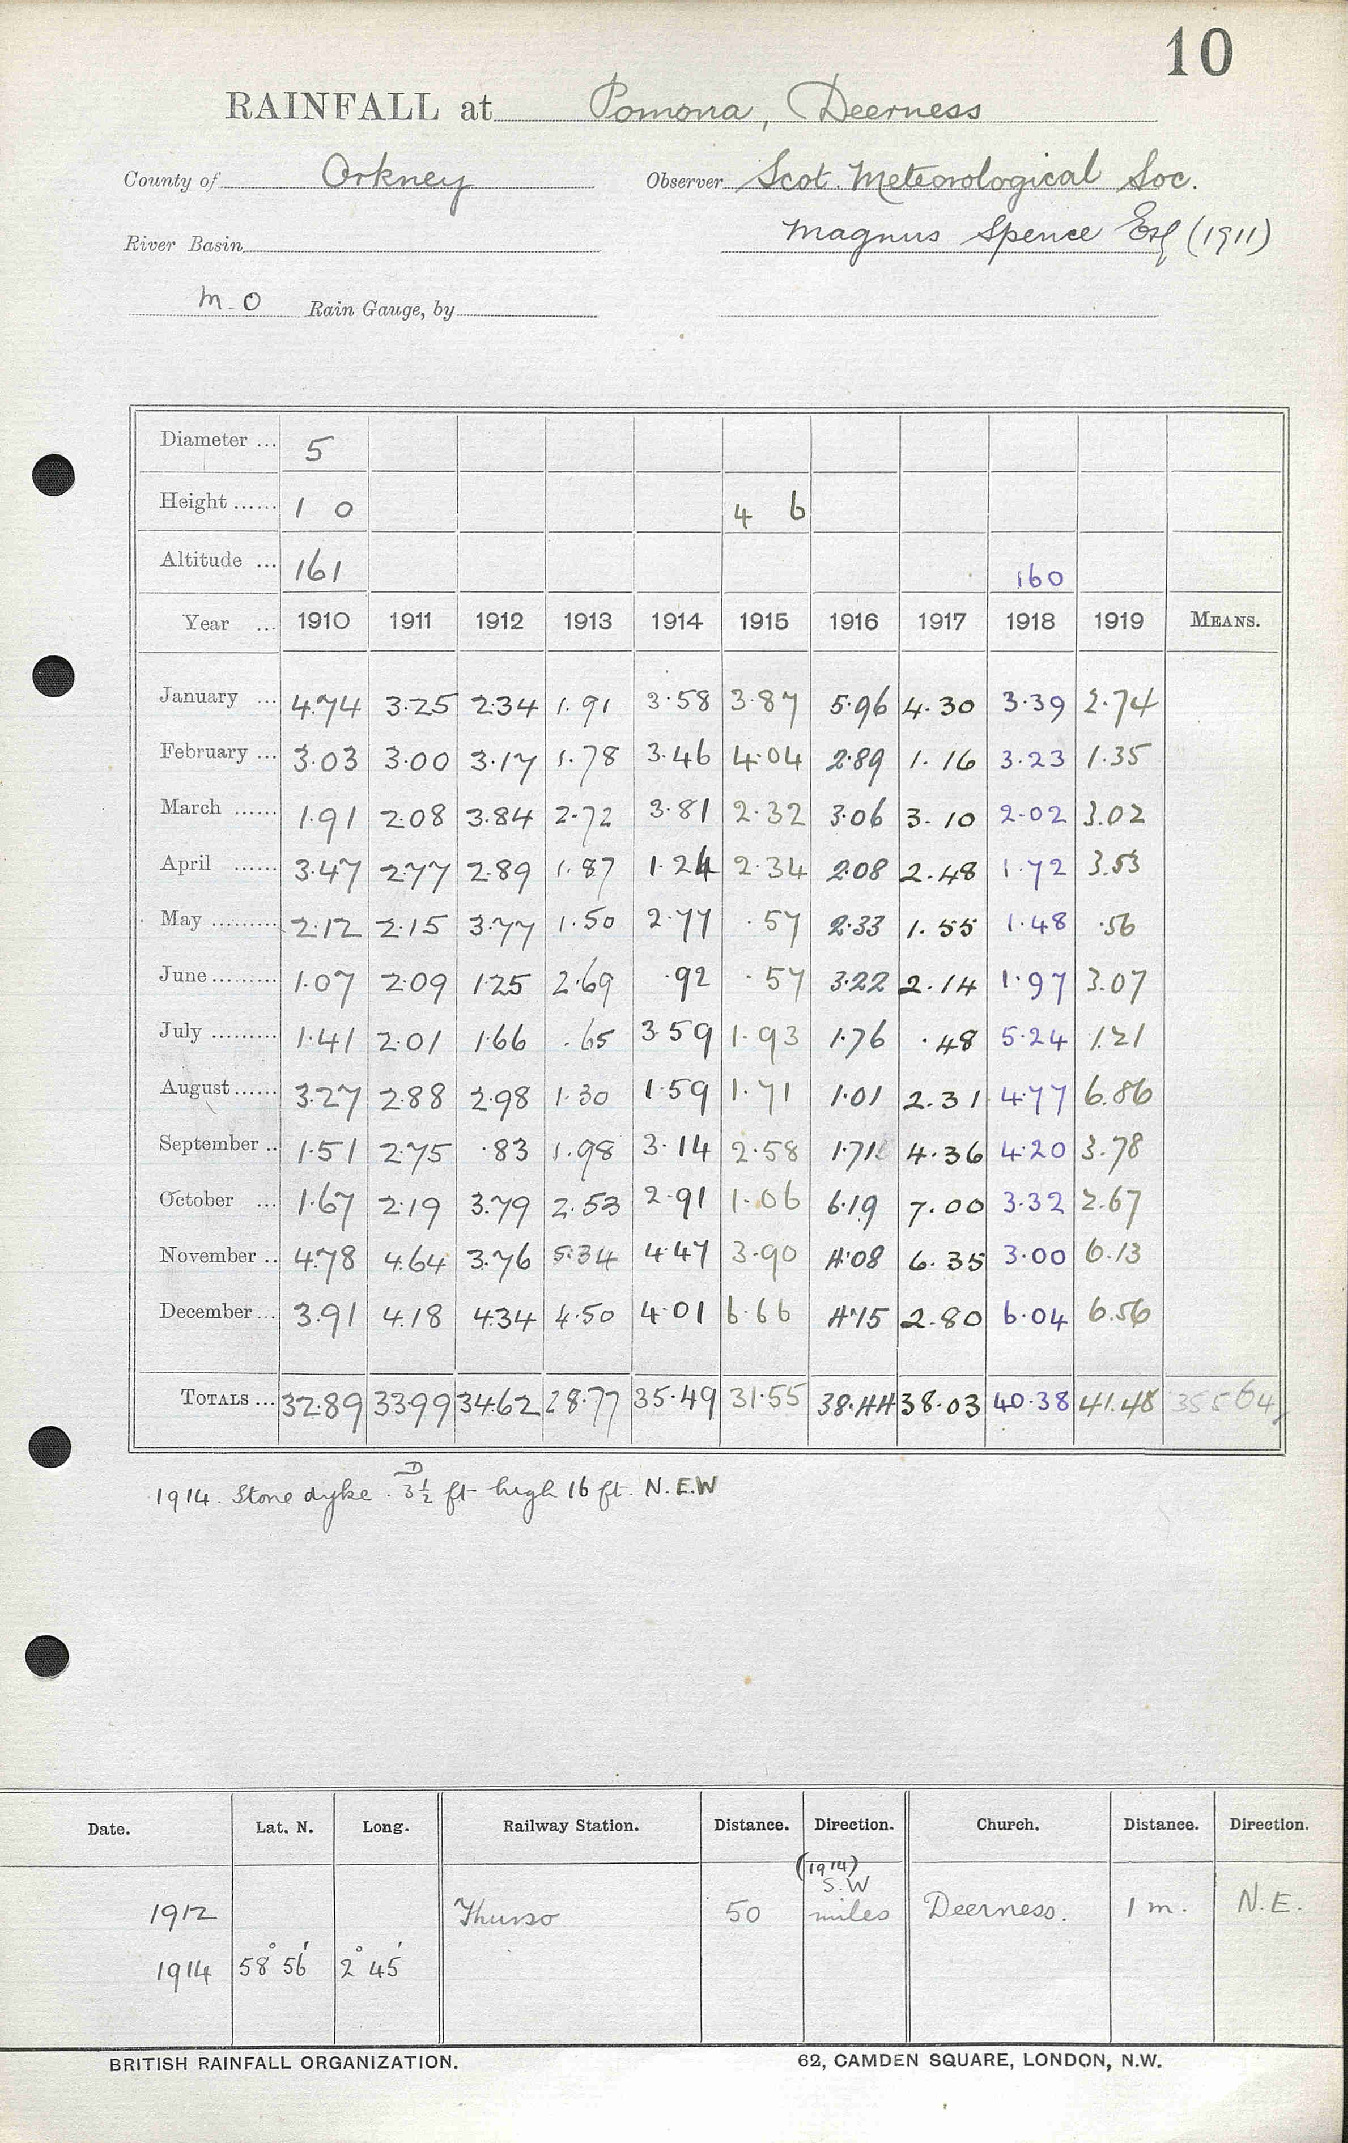 10
RAINFALL at Pomona, Deerness
County of Orkney Observer Scot. Meteorological Soc.
River Basin Magnus Spence Esq (1911)
M.O Rain Gauge, by
Diameter ... 5
Height ...... 1 0 4 6
Altitude ... 161 160
Year ... 1910 1911 1912 1913 1914 1915 1916 1917 1918 1919 MEANS.
January ... 4.74 3.25 2.34 1.91 3.58 3.87 5.96 4.30 3.39 2.74
February ... 3.03 3.00 3.17 1.78 3.46 4.04 2.89 1.16 3.23 1.35
March ...... 1.91 2.08 3.84 2.72 3.81 2.32 3.06 3.10 2.02 3.02
April ...... 3.47 2.77 2.89 1.87 1.24 2.34 2.08 2.48 1.72 3.53
May ......... 2.12 2.15 3.77 1.50 2.77 .57 2.33 1.55 1.48 .56
June ......... 1.07 2.09 1.25 2.69 .92 .57 3.22 2.14 1.97 3.07
July ......... 1.41 2.01 1.66 .65 3.59 1.93 1.76 .48 5.24 1.21
August ...... 3.27 2.88 2.98 1.30 1.59 1.71 1.01 2.31 4.77 6.86
September .. 1.51 2.75 .83 1.98 3.14 2.58 1.71 4.36 4.20 3.78
October ... 1.67 2.19 3.79 2.53 2.91 1.06 6.19 7.00 3.32 2.67
November .. 4.78 4.64 3.76 5.34 4.47 3.90 4.08 6.35 3.00 6.13
December ... 3.91 4.18 4.34 4.50 4.01 6.66 4.15 2.80 6.04 6.56
TOTALS ... 32.89 33.99 34.62 28.77 35.49 31.55 38.44 38.03 40.38 41.48
1914. Stone dyke. D 3½ ft high 16 ft. N.E.W
Date. Lat. N. Long. Railway Station. Distance. Direction. Church. Distance. Direction.
(1914)
S.W
1912 Thurso 50 miles Deerness. 1 m. N.E.
1914 58° 56' 2° 45'
BRITISH RAINFALL ORGANIZATION. 62, CAMDEN SQUARE, LONDON, N.W.